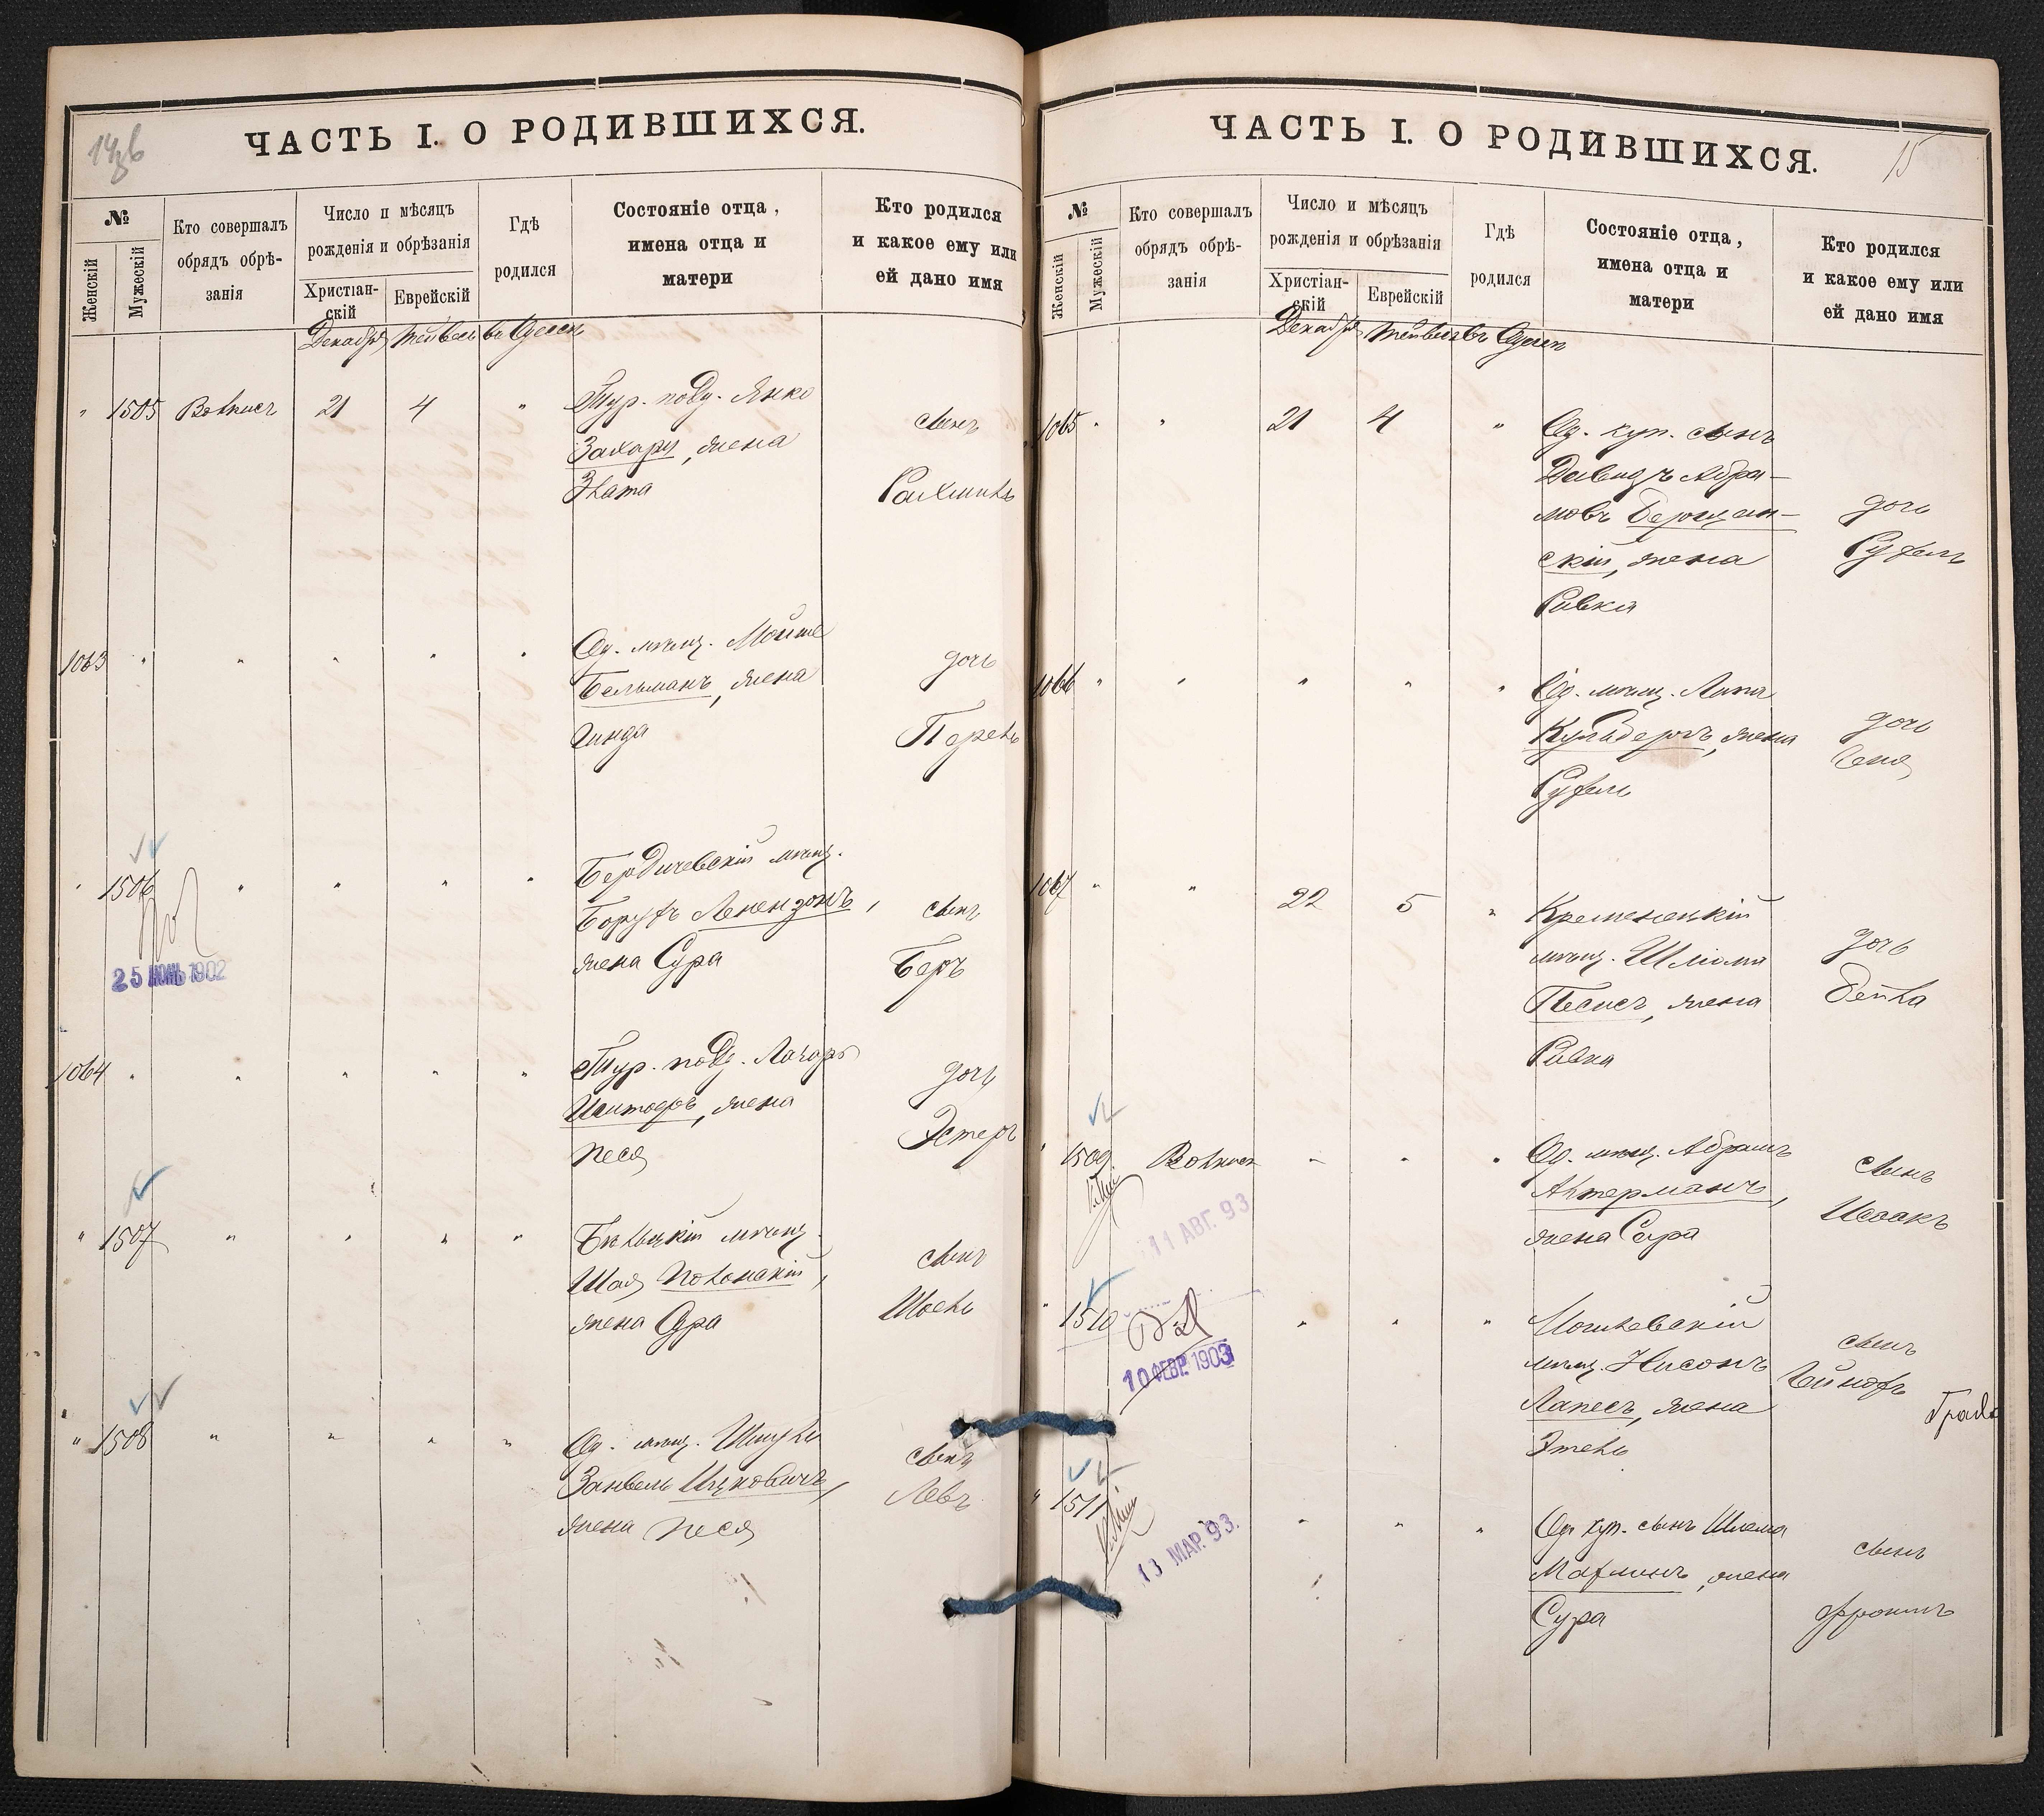 ЧАСТЬ I. О РОДИВШИХСЯ.
№
Женскій
Мужескій
Кто совершалъ
обрядъ обрѣ-
занія
Число и мѣсяцъ
рожденія и обрѣзанія
Христіан-
скій
Еврейскій
Гдѣ
родился
Состояніе отца,
имена отца и
матери
Кто родился
и какое ему или
ей дано имя
Декабря Тейвесъ въ Одессѣ
" 1505 21 4 " Тур. подд. Янко
Захари, жена
Злата
сынъ
Рахмиль
1063 " " " " " Од. мѣщ. Мойше
Бельманъ, жена
Гинда
дочь
Перель
" 1506 " " " " Бердичевскій мѣщ.
Борухъ, жена Сура
сынъ
Беръ
25 ІЮНЬ 1902
1064 " " " " " Тур. подд.
жена
Песя
дочь
Эстеръ
" 1507 " " " " Бѣльцкій мѣщ.
Шая Полонскій,
жена Сура
сынъ
Шоель
" 1508 " " " " Од. мѣщ. Шмуль
Занвель Ицковичъ,
жена Песя
сынъ
Левъ
ЧАСТЬ I. О РОДИВШИХСЯ.
15
№
Женскій
Мужескій
Кто совершалъ
обрядъ обрѣ-
занія
Число и мѣсяцъ
рожденія и обрѣзанія
Христіан-
скій
Еврейскій
Гдѣ
родился
Состояніе отца,
имена отца и
матери
Кто родился
и какое ему или
ей дано имя
Декабря Тейвесъ въ Одессѣ
1065 " " 21 4 " Од. куп. сынъ
Давидъ Абра-
мовъ
скій, жена
Ривка
дочь
Рухель
1066 " " " " " Од. мѣщ. Липа
жена
Рухель
дочь
Геня
1067 " " 22 5 " Кременецкій
мѣщ. Шлiома
Песисъ, жена
Ривка
дочь
Бейла
" 1509 " " " Од. мѣщ. Абрамъ
Актерманъ,
жена Сура
сынъ
Исаакъ
11 АВГ. 93
" 1510 " " " Могилевскій
мѣщ. Нисонъ
Лапесъ, жена
Этель
сынъ
10 ФЕВР. 1903
" 1511 " " " Од. куп. сынъ Шлема
жена
Сура
сынъ
Фроимъ
13 МАР. 93.